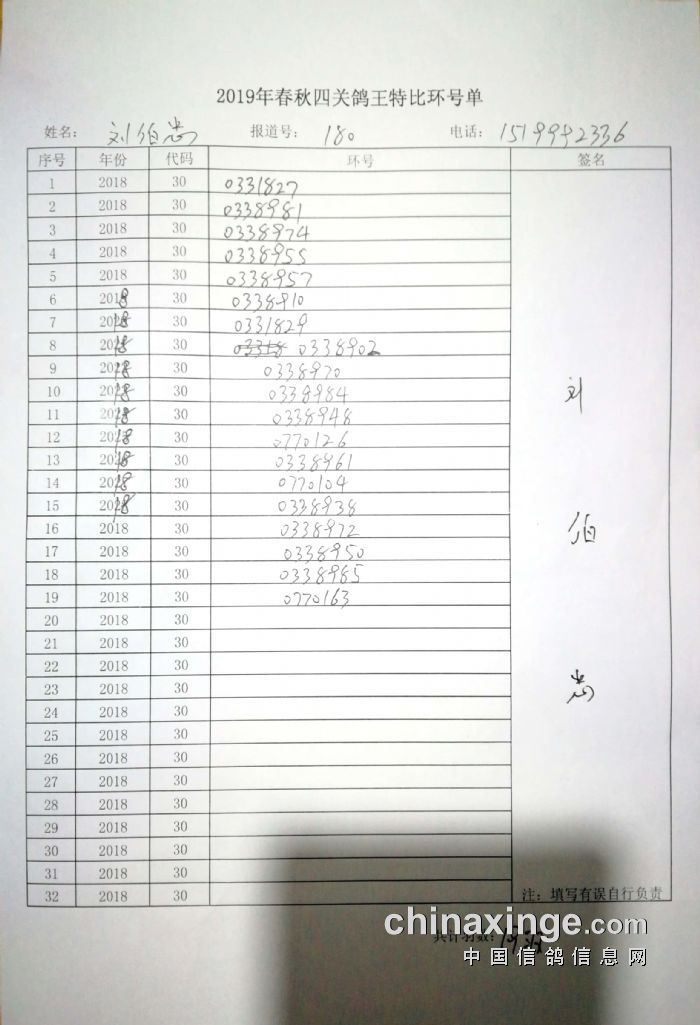 2019年春秋四关鸽王特比环号单
姓名: 刘伯嵩 报道号: 180 电话: 15199992336
序号 年份 代码 环号 签名
1 2018 30 0331827
2 2018 30 0338981
3 2018 30 0338974
4 2018 30 0338955
5 2018 30 0338957
6 2018 30 0338910
7 2018 30 0331829
8 2018 30 0338902
9 2018 30 0338970
10 2018 30 0338984
11 2018 30 0338948
12 2018 30 0770126
13 2018 30 0338961
14 2018 30 0770104
15 2018 30 0338938
16 2018 30 0338972
17 2018 30 0338950
18 2018 30 0338985
19 2018 30 0770163
20 2018 30
21 2018 30
22 2018 30
23 2018 30
24 2018 30
25 2018 30
26 2018 30
27 2018 30
28 2018 30
29 2018 30
30 2018 30
31 2018 30
32 2018 30
刘
伯
注: 填写有误自行负责
共计羽数: 19羽
chinaxinge.com
中国信鸽信息网